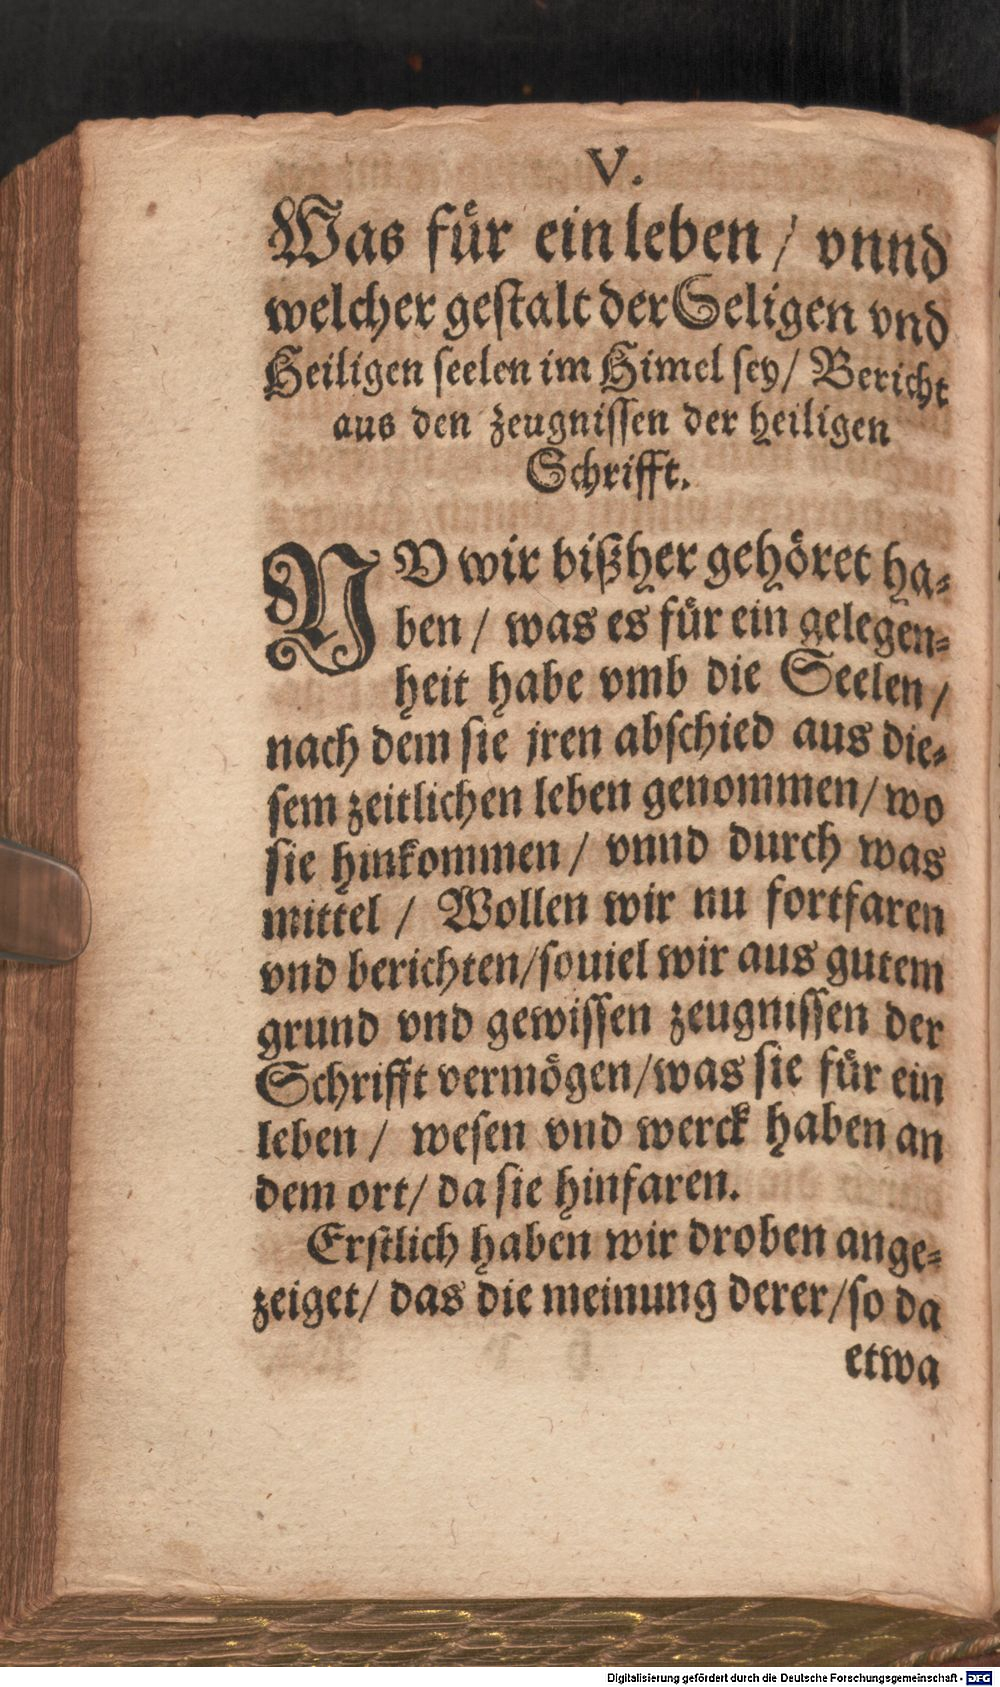 V.
Was für ein leben / vnnd
welcher gestalt der Seligen vnd
Heiligen seelen im Himel sey / Bericht
aus den zeugnissen der heiligen
Schrifft.
NV wir bißher gehöret ha-
ben / was es für ein gelegen-
heit habe vmb die Seelen /
nach dem sie jren abschied aus die-
sem zeitlichen leben genommen / wo
sie hinkommen / vnnd durch was
mittel / Wollen wir nu fortfaren
vnd berichten / souiel wir aus gutem
grund vnd gewissen zeugnissen der
Schrifft vermögen / was sie für ein
leben / wesen vnd werck haben an
dem ort / da sie hinfaren.
Erstlich haben wir droben ange-
zeiget / das die meinung derer / so da
etwa
Digitalisierung gefördert durch die Deutsche Forschungsgemeinschaft - DFG